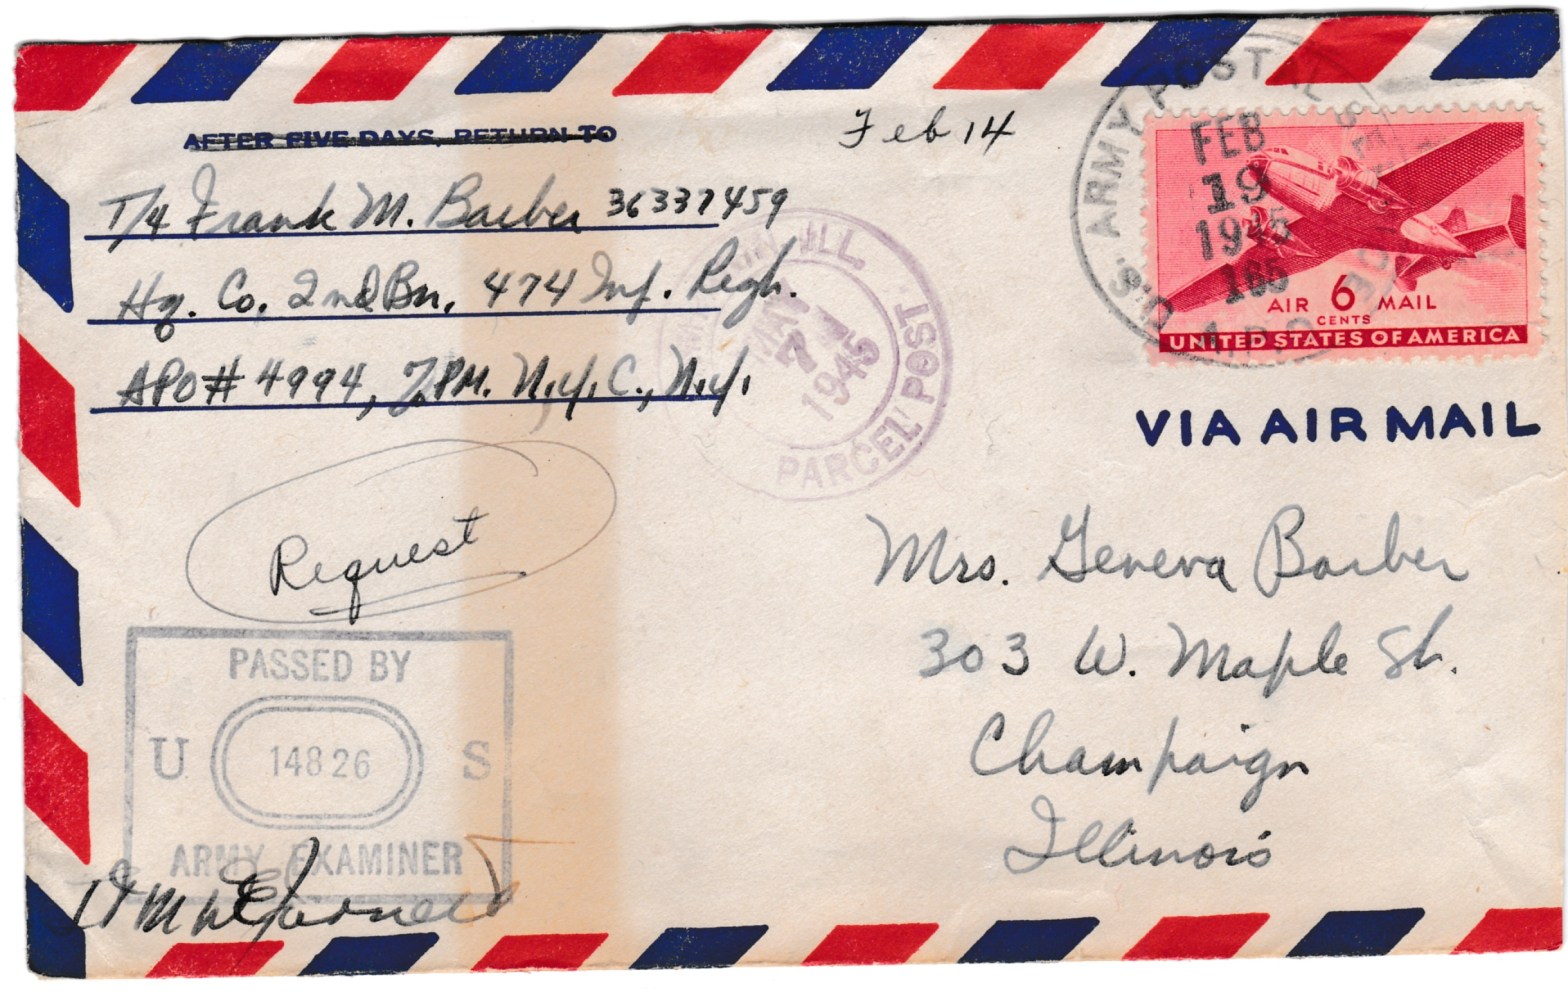 AFTER FIVE DAYS, RETURN TO
Feb 14
T/4 Frank M. Barber 36337459
Hq. Co. 2nd Bn. 474 Inf. Regt.
APO # 4994, % PM. N.Y.C., N.Y.
U.S. ARMY POSTAL
A.P.O.
FEB
19
1945
165
AIR 6 MAIL
CENTS
UNITED STATES OF AMERICA
VIA AIR MAIL
ILL.
MAY
7
1945
PARCEL POST
Request
Mrs. Geneva Barber
303 W. Maple St.
Champaign
Illinois
PASSED BY
U 14826 S
ARMY EXAMINER